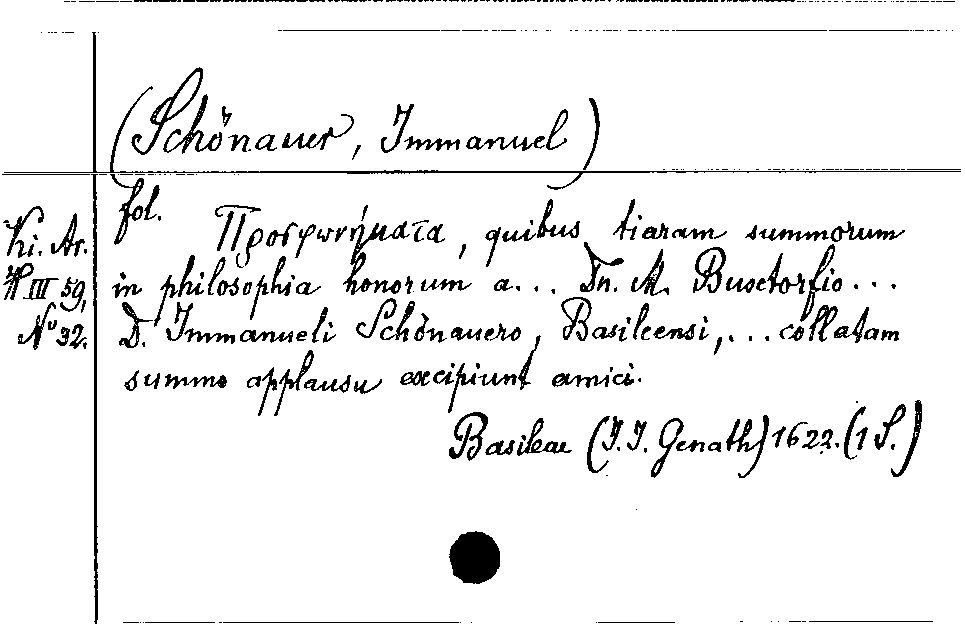 (Schönauer, Immanuel)
fol.
Προσφωνήματα, quibus tiaram summorum
in philosophia honorum a... Dn. M. Buxtorfio...
D. Immanueli Schönauero, Basileensi,... collatam
summo applausu excipiunt amici.
Basileae (J. J. Genath) 1622. (1 S.)
Ki. Ar.
H III 59,
No 32.